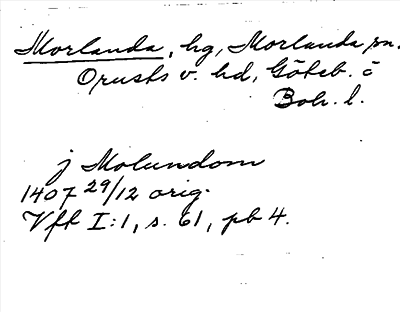 Morlanda, hg, Morlanda sn.
Orusts v. hd, Göteb. o
Boh. l.
j Molundom
1407 29/12 orig.
Vfk I:1, s. 61, pb 4.